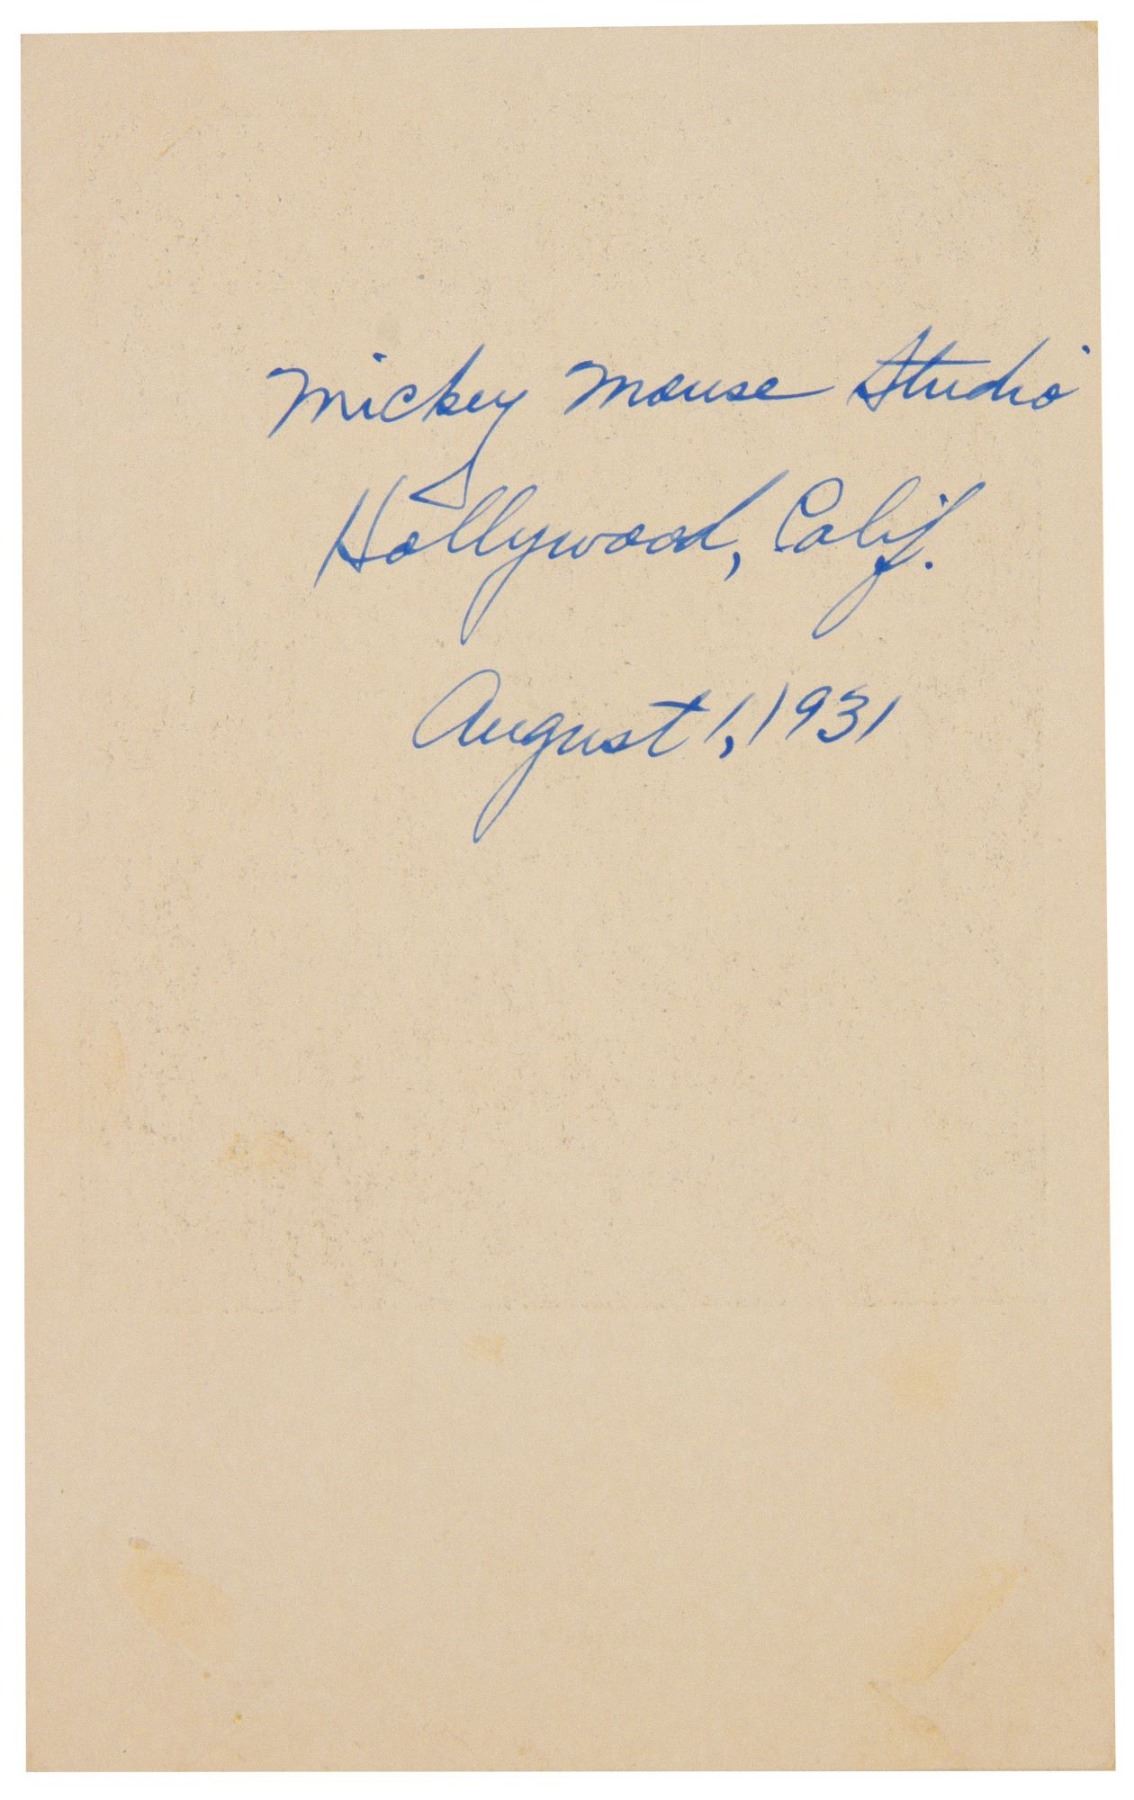 Mickey Mouse Studio
Hollywood, Calif.
August 1, 1931